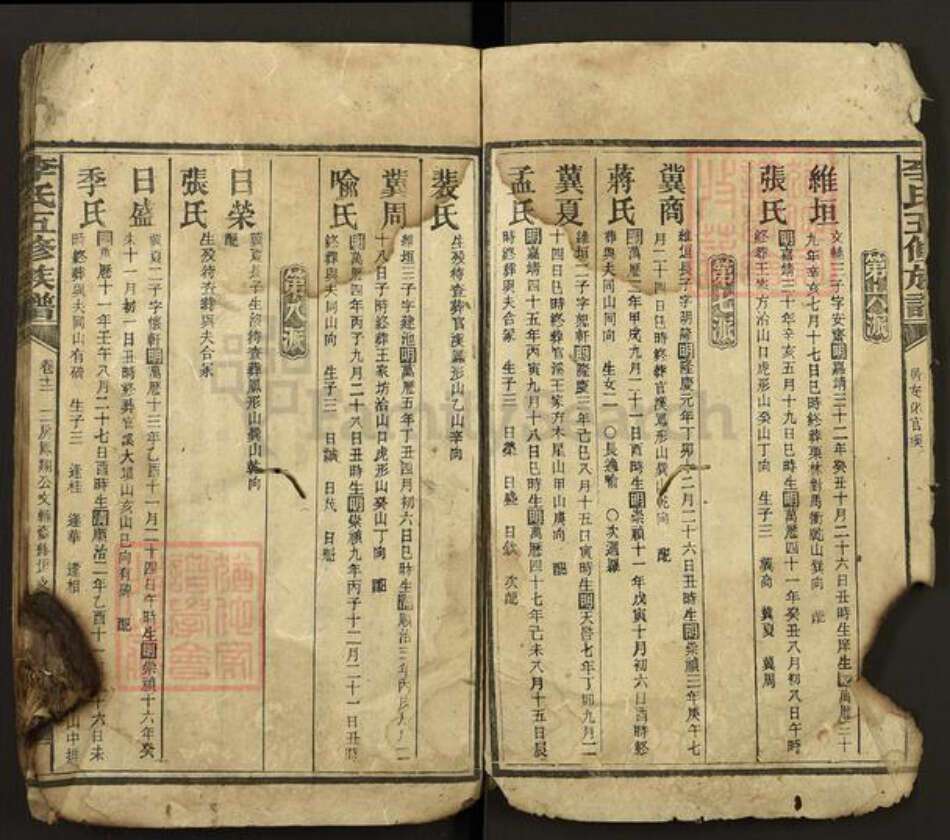 第六派
維垣
文繡三子字安齋明嘉靖三十二年癸丑十月二十六日丑時生庠生 萬曆三十
九年辛亥七月十七日巳時終葬栗林對馬衝乾山巽向 配
張氏
明嘉靖三十年辛亥五月十九日巳時生明萬曆四十一年癸丑八月初八日午時
終葬王家方冶山口虎形山癸山丁向 生子三 冀商 冀夏 冀周
第七派
冀商
維垣長子字明隆明隆慶元年丁卯十二月二十六日丑時生明崇禎三年庚午七
月二十四日巳時終葬官溪鳳形山巽山乾向 配
蔣氏
明萬曆二年甲戌九月二十一日酉時生明崇禎十一年戊寅十月初六日酉時終
葬與夫同山同向 生女二 ○長適喻 ○次適羅
冀夏
維垣二子字 軒明隆慶三年己巳八月十五日寅時生明天啓七年丁卯九月二
十四日巳時終葬官溪王家方木星山甲山庚向 配
孟氏
明嘉靖四十五年丙寅九月十八日巳時生明萬曆四十七年己未八月十五日辰
時終葬與夫合冢 生子三 日榮 日盛 日欽 次配
裴氏
生歿待查葬官溪鳳形山乙山辛向
冀周
維垣三子字建池明萬曆五年丁丑四月初六日巳時生清順治三年丙戌 月十二
十八日子時終葬王家坊冶山口虎形山癸山丁向 配
喻氏
明萬曆四年丙子九月二十八日丑時生明崇禎九年丙子十二月二十一日丑時
終葬與夫同山同向 生子三 日誠 日茂 日魁
第八派
日榮
冀夏長子生歿待查葬鳳形山巽山乾向
配
張氏
生歿待查葬與夫合冢
日盛
冀夏二子字懷軒明萬曆十三年乙酉十一月二十四日午時生明崇禎十六年癸
未十一月初一日丑時終葬官溪大塅山亥山巳向有碑 配
季氏
明萬曆十一年壬午八月二十七日酉時生清順治二年乙酉十一 十六日未
時終葬與夫同山有碑 生子三 逢桂 逢華 逢相 山中
李氏五修族譜
卷十二
李氏五修族譜